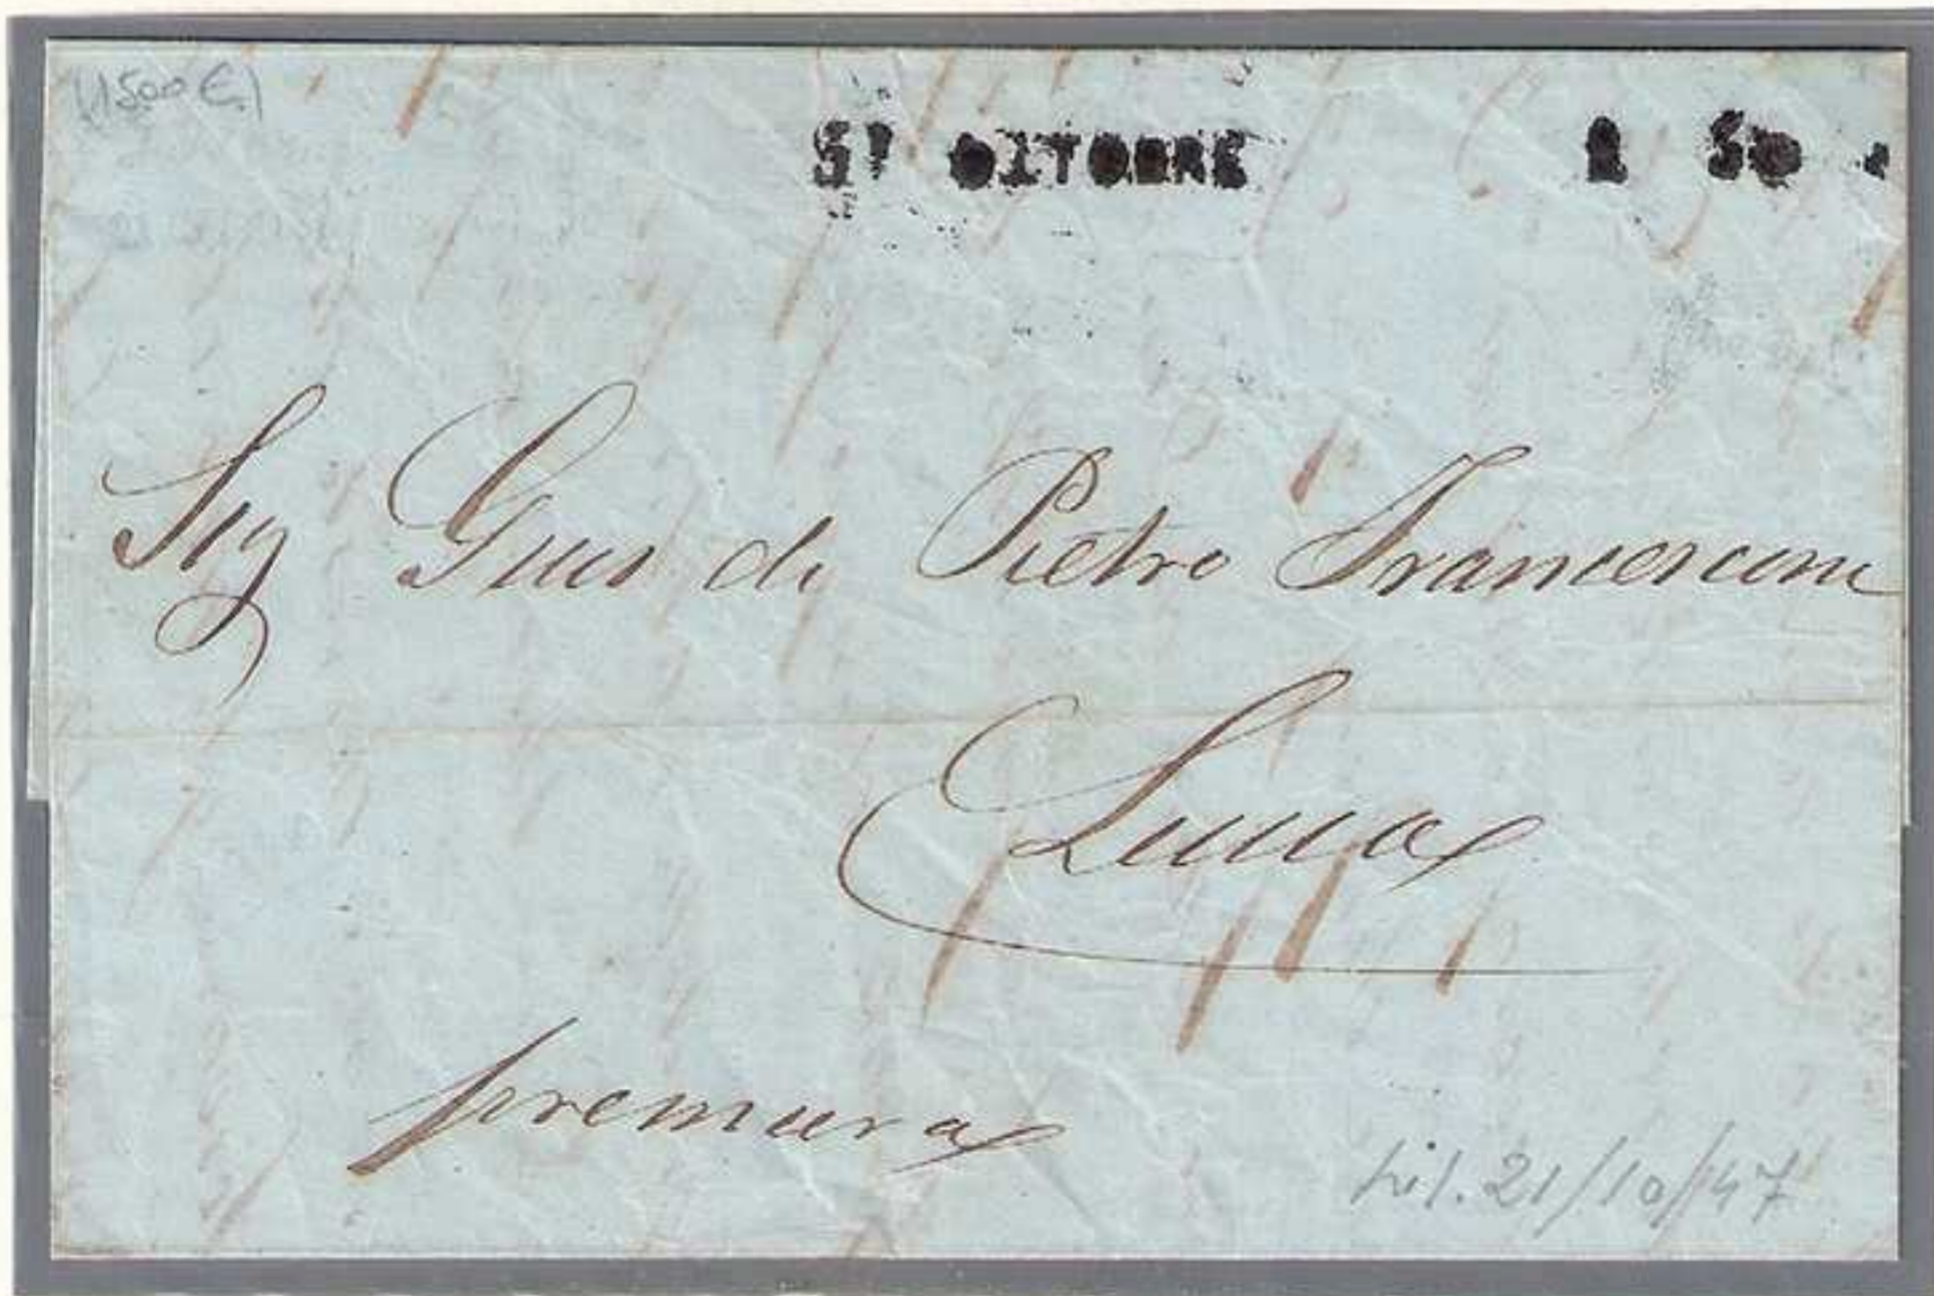 (1500 €.)
OTTOBRE
Sig Gius di Pietro Francesconi
Lucca
premura
21/10/47